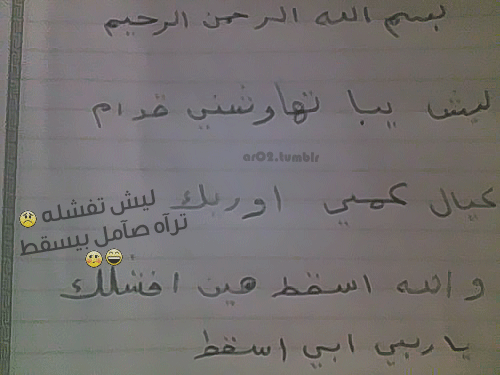 بسم الله الرحمن الرحيم
ليش يبا تهاوشني قدام
ar02.tumblr
عيال عمي اوريك
ليش تفشله ☹️
ترآه صآمل بيسقط
😅🤔
والله اسقط هين افشلك
ياربي ابي اسقط